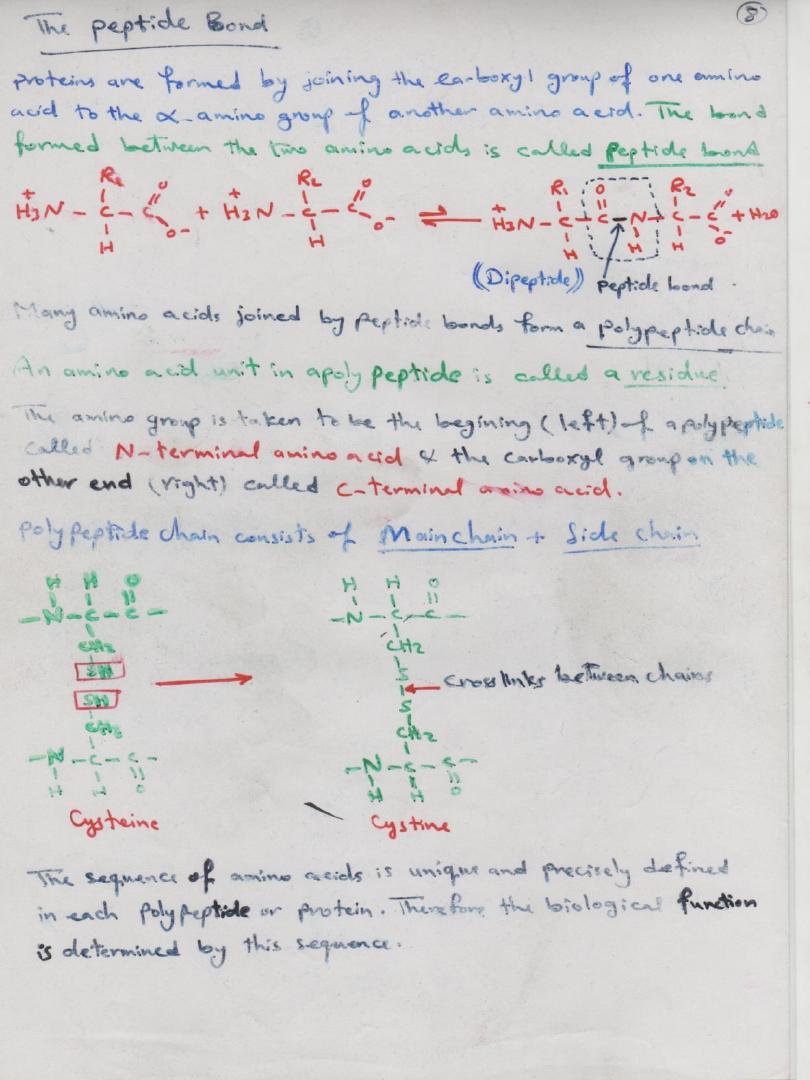 The peptide Bond
8
proteins are formed by joining the carboxyl group of one amino
acid to the α-amino group of another amino acid. The bond
formed between the two amino acids is called peptide bond
R1 O R2 O R1 O R2 O
+ + +
H3N - C - C + H3N - C - C ⇌ H3N - C - C - N - C - C + H2O
H O- H O- H H H O-
((Dipeptide)) peptide bond
Many amino acids joined by peptide bonds form a polypeptide chain
An amino acid unit in apoly peptide is called a residue.
The amino group is taken to be the begining (left) of a polypeptide
called N-terminal amino acid & the carboxyl group on the
other end (right) called C-terminal amino acid.
polypeptide chain consists of Mainchain + Side chain
H H O H H O
- N - C - C - - N - C - C -
CH2 CH2
SH S
Cross links between chains
SH S
CH2 CH2
- N - C - C - - N - C - C -
H H O H H O
Cysteine Cystine
The sequence of amino acids is unique and precisely defined
in each polypeptide or protein. Therefore the biological function
is determined by this sequence.